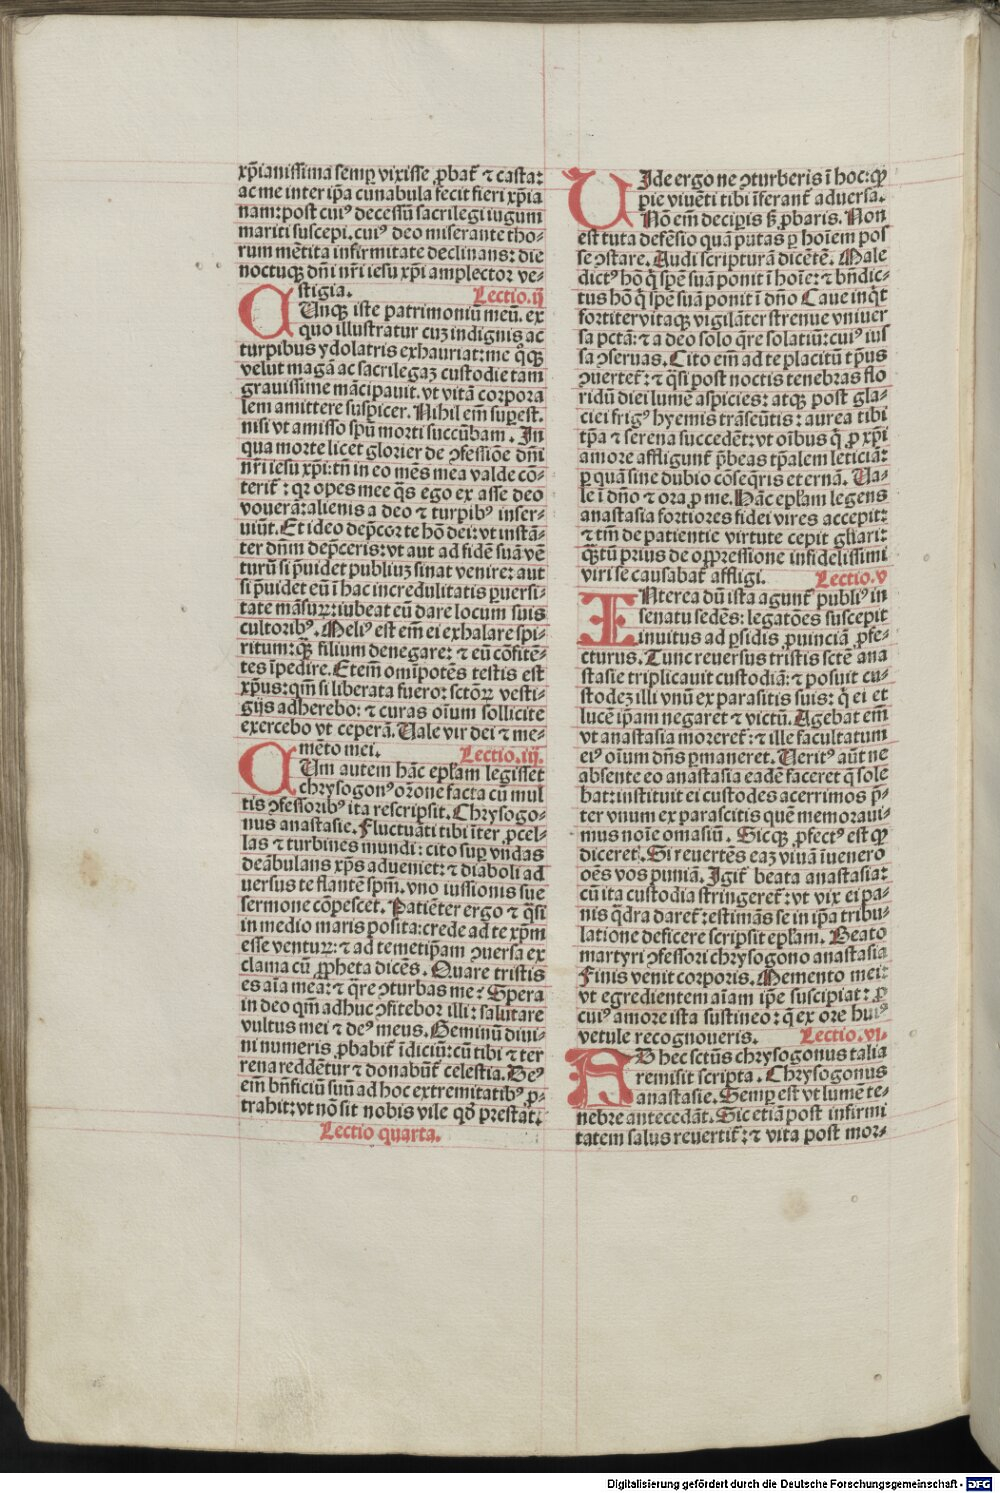 xp̄ianissima semꝑ vixisse ꝓbat᷑ ⁊ casta:
ac me inter ip̄a cunabula fecit fieri xp̄ia
nam: post cuiꝰ decessū sacrilegi iugum
mariti suscepi. cuiꝰ deo miserante tho-
rum mētita infirmitate declinans: die
noctuqꝫ dn̄i nr̄i iesu xp̄i amplector ve-
stigia. Lectio.ij
CUnqꝫ iste patrimoniū meū. ex
quo illustratur cuꝫ indignis ac
turpibus ydolatris exhauriat: me q̊qꝫ
velut magā ac sacrilegaꝫ custodie tam
grauissime mācipauit. vt vitā corpora
lem amittere suspicer. Nihil em̄ suꝑest.
nisi vt amisso spū morti succūbam. In
qua morte licet glorier de ꝯfessiōe dn̄i
nr̄i iesu xp̄i: tn̄ in eo mēs mea valde cō-
terit᷑: qꝛ opes mee q̄s ego ex asse deo
vouerā: alienis a deo ⁊ turpibꝰ inser-
uiūt. Et ideo dep̄cor te hō dei: vt instā-
ter dn̄m dep̄ceris: vt aut ad fidē suā vē
turū si p̄uidet publiuꝫ sinat venire: aut
si p̄uidet eū ī hac incredulitatis ꝑuersi-
tate māsuꝝ: iubeat eū dare locum suis
cultoribꝰ. Meliꝰ est em̄ ei exhalare spi-
ritum: qꝫ̄ filium denegare: ⁊ eū cōfitē-
tes īpedire. Etem̄ om̄ipotēs testis est
xp̄us: qm̄ si liberata fuero: sctōꝝ vesti-
gijs adherebo: ⁊ curas oīum sollicite
exercebo vt ceperā. Uale vir dei ⁊ me-
mēto mei. Lectio.iij.
CUm autem hāc epl̄am legisset
chrysogonꝰ or̄one facta cū mul
tis ꝯfessoribꝰ ita rescripsit. Chrysogo-
nus anastasie. Fluctuāti tibi īter ꝓcel-
las ⁊ turbines mundi: cito suꝑ vndas
deābulans xp̄s adueniet: ⁊ diaboli ad
uersus te flantē spm̄. vno iussionis sue
sermone cōpescet. Patiēter ergo ⁊ q̄si
in medio maris posita: crede ad te xp̄m
esse ventuꝝ: ⁊ ad temetip̄am ꝯuersa ex
clama cū ꝓpheta dicēs. Quare tristis
es aīa mea: ⁊ q̄re ꝯturbas me: Spera
in deo qm̄ adhuc ꝯfitebor illi: salutare
vultus mei ⁊ deꝰ meus. Geminū diui-
ni numeris ꝓbabit᷑ īdiciū: cū tibi ⁊ ter
rena reddētur ⁊ donabūt᷑ celestia. Deꝰ
em̄ bn̄ficiū suū ad hoc extremitatibꝰ ꝓ-
trahit: vt nō sit nobis vile qd̄ prestat᷑.
Lectio quarta.
UIde ergo ne ꝯturberis ī hoc: ꝙ
pie viuēti tibi īferant᷑ aduersa.
Nō em̄ deciperis sꝫ ꝓbaris. Non
est tuta defēsio quā putas ꝑ hoīem pos
se ꝯstare. Audi scripturā dicētē. Male
dictꝰ hō q̄ spē suā ponit ī hoīe: ⁊ bn̄dic-
tus hō q̄ spē suā ponit ī dn̄o Caue inq̄t
fortiter vitaqꝫ vigilāter strenue vniuer
sa pctā: ⁊ a deo solo q̄re solatiū: cuiꝰ ius
sa ꝯseruas. Cito em̄ ad te placitū tp̄us
ꝯuertet᷑: ⁊ q̄si post noctis tenebras flo
ridū diei lumē aspicies: atqꝫ post gla-
ciei frigꝰ hyemis trāseūtis: aurea tibi
tp̄a ⁊ serena succedēt: vt oībus q̄ ꝓ xp̄i
amore affligunt᷑ p̄beas tp̄alem leticiā:
ꝑ quā sine dubio cōseq̄ris et ernā. Ua-
le ī dn̄o ⁊ ora ꝓ me. Hāc epl̄am legens
anastasia fortiores fidei vires accepit:
⁊ tm̄ de patientie virtute cepit gl̄iari:
qꝫ̄tū prius de oppressione infidelissimi
viri se causabat᷑ affligi. Lectio.v
INterea dū ista agunt᷑ publiꝰ in
senatu sedēs: legatōes suscepit
inuitus ad ꝑsidis ꝓuinciā ꝓfe-
cturus. Tunc reuersus tristis sctē ana
stasie triplicauit custodiā: ⁊ posuit cu-
stodeꝫ illi vnū ex parasitis suis: q̄ ei et
lucē ip̄am negaret ⁊ victū. Agebat em̄
vt anastasia moreret᷑: ⁊ ille facultatum
eiꝰ oīum dn̄s ꝑmaneret. Ueritꝰ aūt ne
absente eo anastasia eadē faceret q̄ sole
bat: instituit ei custodes acerrimos p̄-
ter vnum ex parascitis quē memoraui-
mus noīe omasiū. Sicqꝫ ꝓfectꝰ est ꝙ
diceret. Si reuertēs eaꝫ viuā īuenero
oēs vos puniā. Igit᷑ beata anastasia:
cū ita custodia stringeret᷑: vt vix ei pa-
nis q̄dra daret᷑: estimās se in ip̄a tribu-
latione deficere scripsit epl̄am. Beato
martyri ꝯfessori chrysogono anastasia
Finis venit corporis. Memento mei:
vt egredientem aīam ip̄e suscipiat: ꝓ
cuiꝰ amore ista sustineo: q̄ ex ore huiꝰ
vetule recognoueris. Lectio.vi.
AD hec sctūs chrysogonus talia
remisit scripta. Chrysogonus
anastasie. Semꝑ est vt lumē te-
nebre antecedāt. Sic etiā post infirmi
tatem salus reuertit᷑: ⁊ vita post mor-
Digitalisierung gefördert durch die Deutsche Forschungsgemeinschaft - DFG